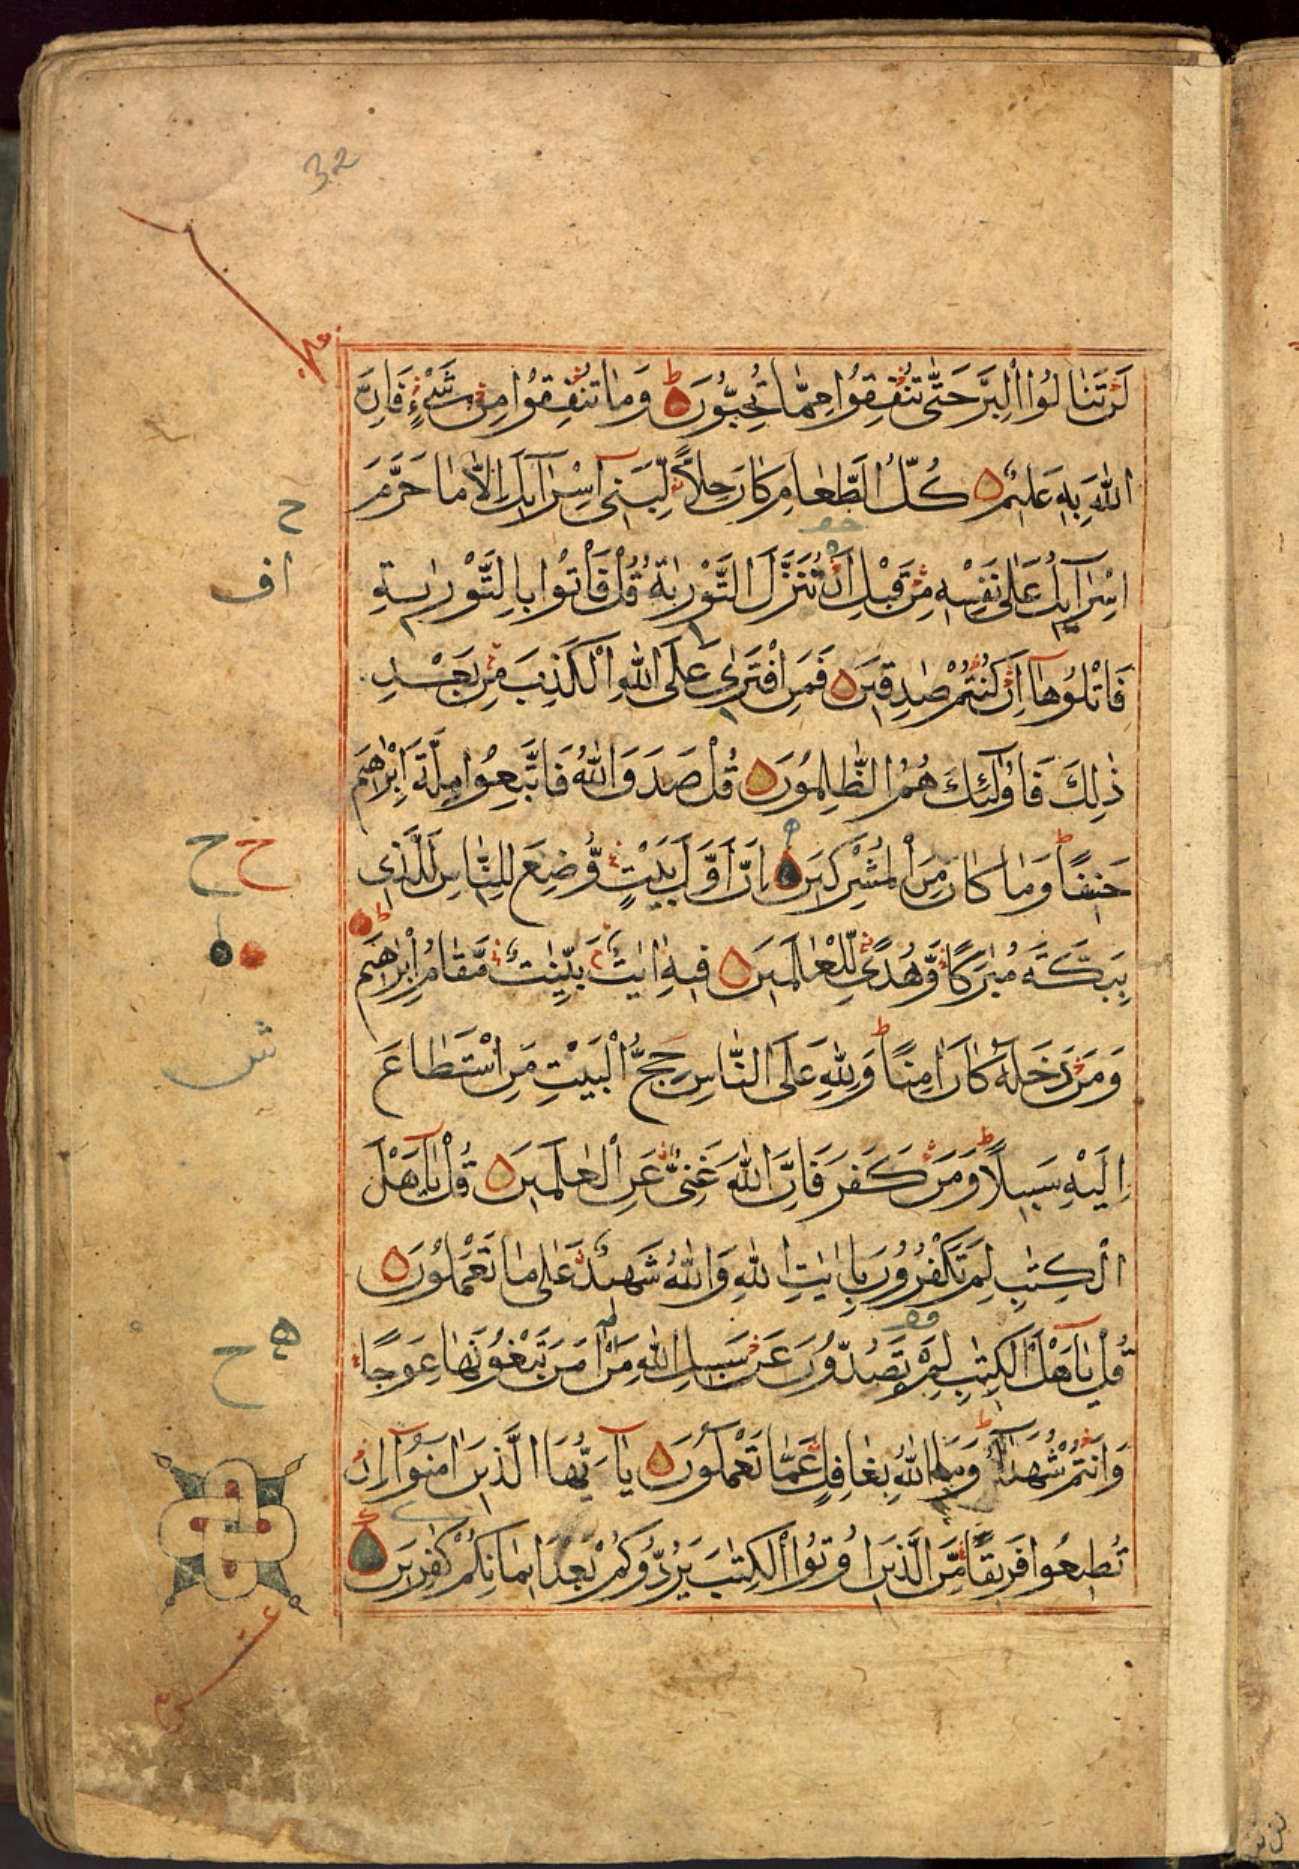 32
لَنْ تَنَالُوا الْبِرَّ حَتّٰى تُنْفِقُوا مِمَّا تُحِبُّونَ ط وَمَا تُنْفِقُوا مِنْ شَيْءٍ فَاِنَّ
اللّٰهَ بِهٖ عَلِيمٌ كُلُّ الطَّعَامِ كَانَ حِلًّا لِبَنِىٓ اِسْرَآئِلَ اِلَّا مَا حَرَّمَ
ح
اِسْرَآئِلُ عَلٰى نَفْسِهٖ مِنْ قَبْلِ اَنْ تُنَزَّلَ التَّوْرٰيةُ قُلْ فَأْتُوا بِالتَّوْرٰيةِ
اف
فَاتْلُوهَآ اِنْ كُنْتُمْ صٰدِقِينَ فَمَنِ افْتَرٰى عَلَى اللّٰهِ الْكَذِبَ مِنْ بَعْدِ
ذٰلِكَ فَاُولٰٓئِكَ هُمُ الظّٰلِمُونَ قُلْ صَدَقَ اللّٰهُ فَاتَّبِعُوا مِلَّةَ اِبْرٰاهِيمَ
حَنِيفًا ط وَمَا كَانَ مِنَ الْمُشْرِكِينَ اِنَّ اَوَّلَ بَيْتٍ وُّضِعَ لِلنَّاسِ لَلَّذِى
خ ح
بِبَكَّةَ مُبٰرَكًا وَّهُدًى لِّلْعٰالَمِينَ فِيهِ اٰيٰتٌ بَيِّنٰتٌ مَّقَامُ اِبْرٰاهِيمَ
وَمَنْ دَخَلَهٗ كَانَ اٰمِنًا ط وَلِلّٰهِ عَلَى النَّاسِ حِجُّ الْبَيْتِ مَنِ اسْتَطَاعَ
اِلَيْهِ سَبِيلًا ط وَمَنْ كَفَرَ فَاِنَّ اللّٰهَ غَنِىٌّ عَنِ الْعٰلَمِينَ قُلْ يٰآ اَهْلَ
الْكِتٰبِ لِمَ تَكْفُرُونَ بِاٰيٰتِ اللّٰهِ وَاللّٰهُ شَهِيدٌ عَلٰى مَا تَعْمَلُونَ
قُلْ يٰآ اَهْلَ الْكِتٰبِ لِمَ تَصُدُّونَ عَنْ سَبِيلِ اللّٰهِ مَنْ اٰمَنَ تَبْغُونَهَا عِوَجًا
ه ح
وَاَنْتُمْ شُهَدَآءُ ط وَمَا اللّٰهُ بِغَافِلٍ عَمَّا تَعْمَلُونَ يٰآ اَيُّهَا الَّذِينَ اٰمَنُوٓا اِنْ
تُطِيعُوا فَرِيقًا مِّنَ الَّذِينَ اُوتُوا الْكِتٰبَ يَرُدُّوكُمْ بَعْدَ اِيمَانِكُمْ كٰفِرِينَ